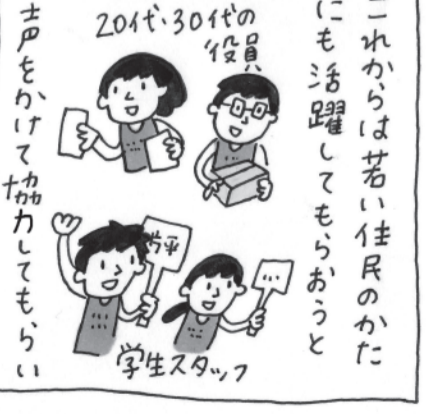 これからは若い住民のかた
にも活躍してもらおうと
20代・30代の
役員
学生スタッフ
声をかけて協力してもらい